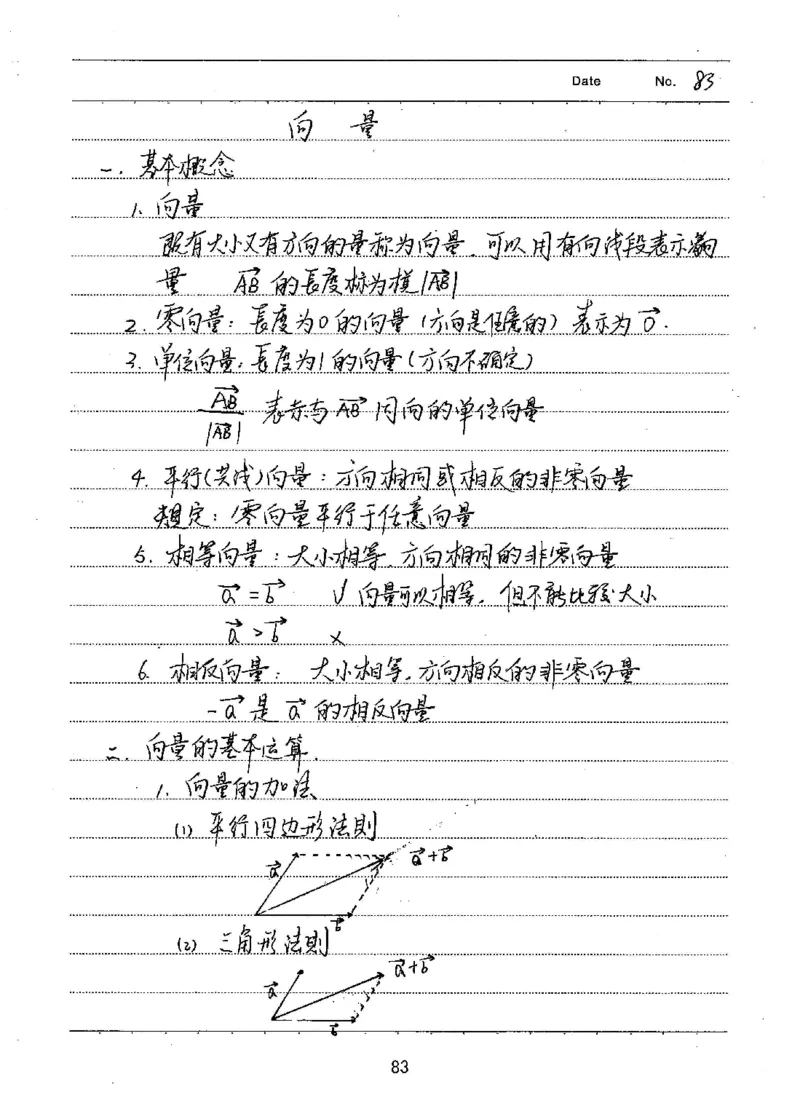 Date No. 83
向 量
一. 基本概念
1. 向量
既有大小又有方向的量称为向量. 可以用有向线段表示向
量 $\overrightarrow{AB}$ 的长度称为模 $|\overrightarrow{AB}|$
2. 零向量: 長度为0的向量 (方向是任意的) 表示为 $\vec{0}$.
3. 单位向量: 長度为1的向量 (方向不确定)
$\frac{\overrightarrow{AB}}{|\overrightarrow{AB}|}$ 表示与 $\overrightarrow{AB}$ 同向的单位向量
4. 平行(共线)向量: 方向相同或相反的非零向量
规定: 零向量平行于任意向量
5. 相等向量: 大小相等. 方向相同的非零向量
$\vec{a} = \vec{b}$ √ 向量可以相等. 但不能比较大小
$\vec{a} > \vec{b}$ ×
6. 相反向量: 大小相等. 方向相反的非零向量
$-\vec{a}$ 是 $\vec{a}$ 的相反向量
二. 向量的基本运算.
1. 向量的加法
(1) 平行四边形法则
$\vec{a}$ $\vec{a}+\vec{b}$
$\vec{b}$
(2) 三角形法则
$\vec{a}+\vec{b}$
$\vec{a}$
$\vec{b}$
83